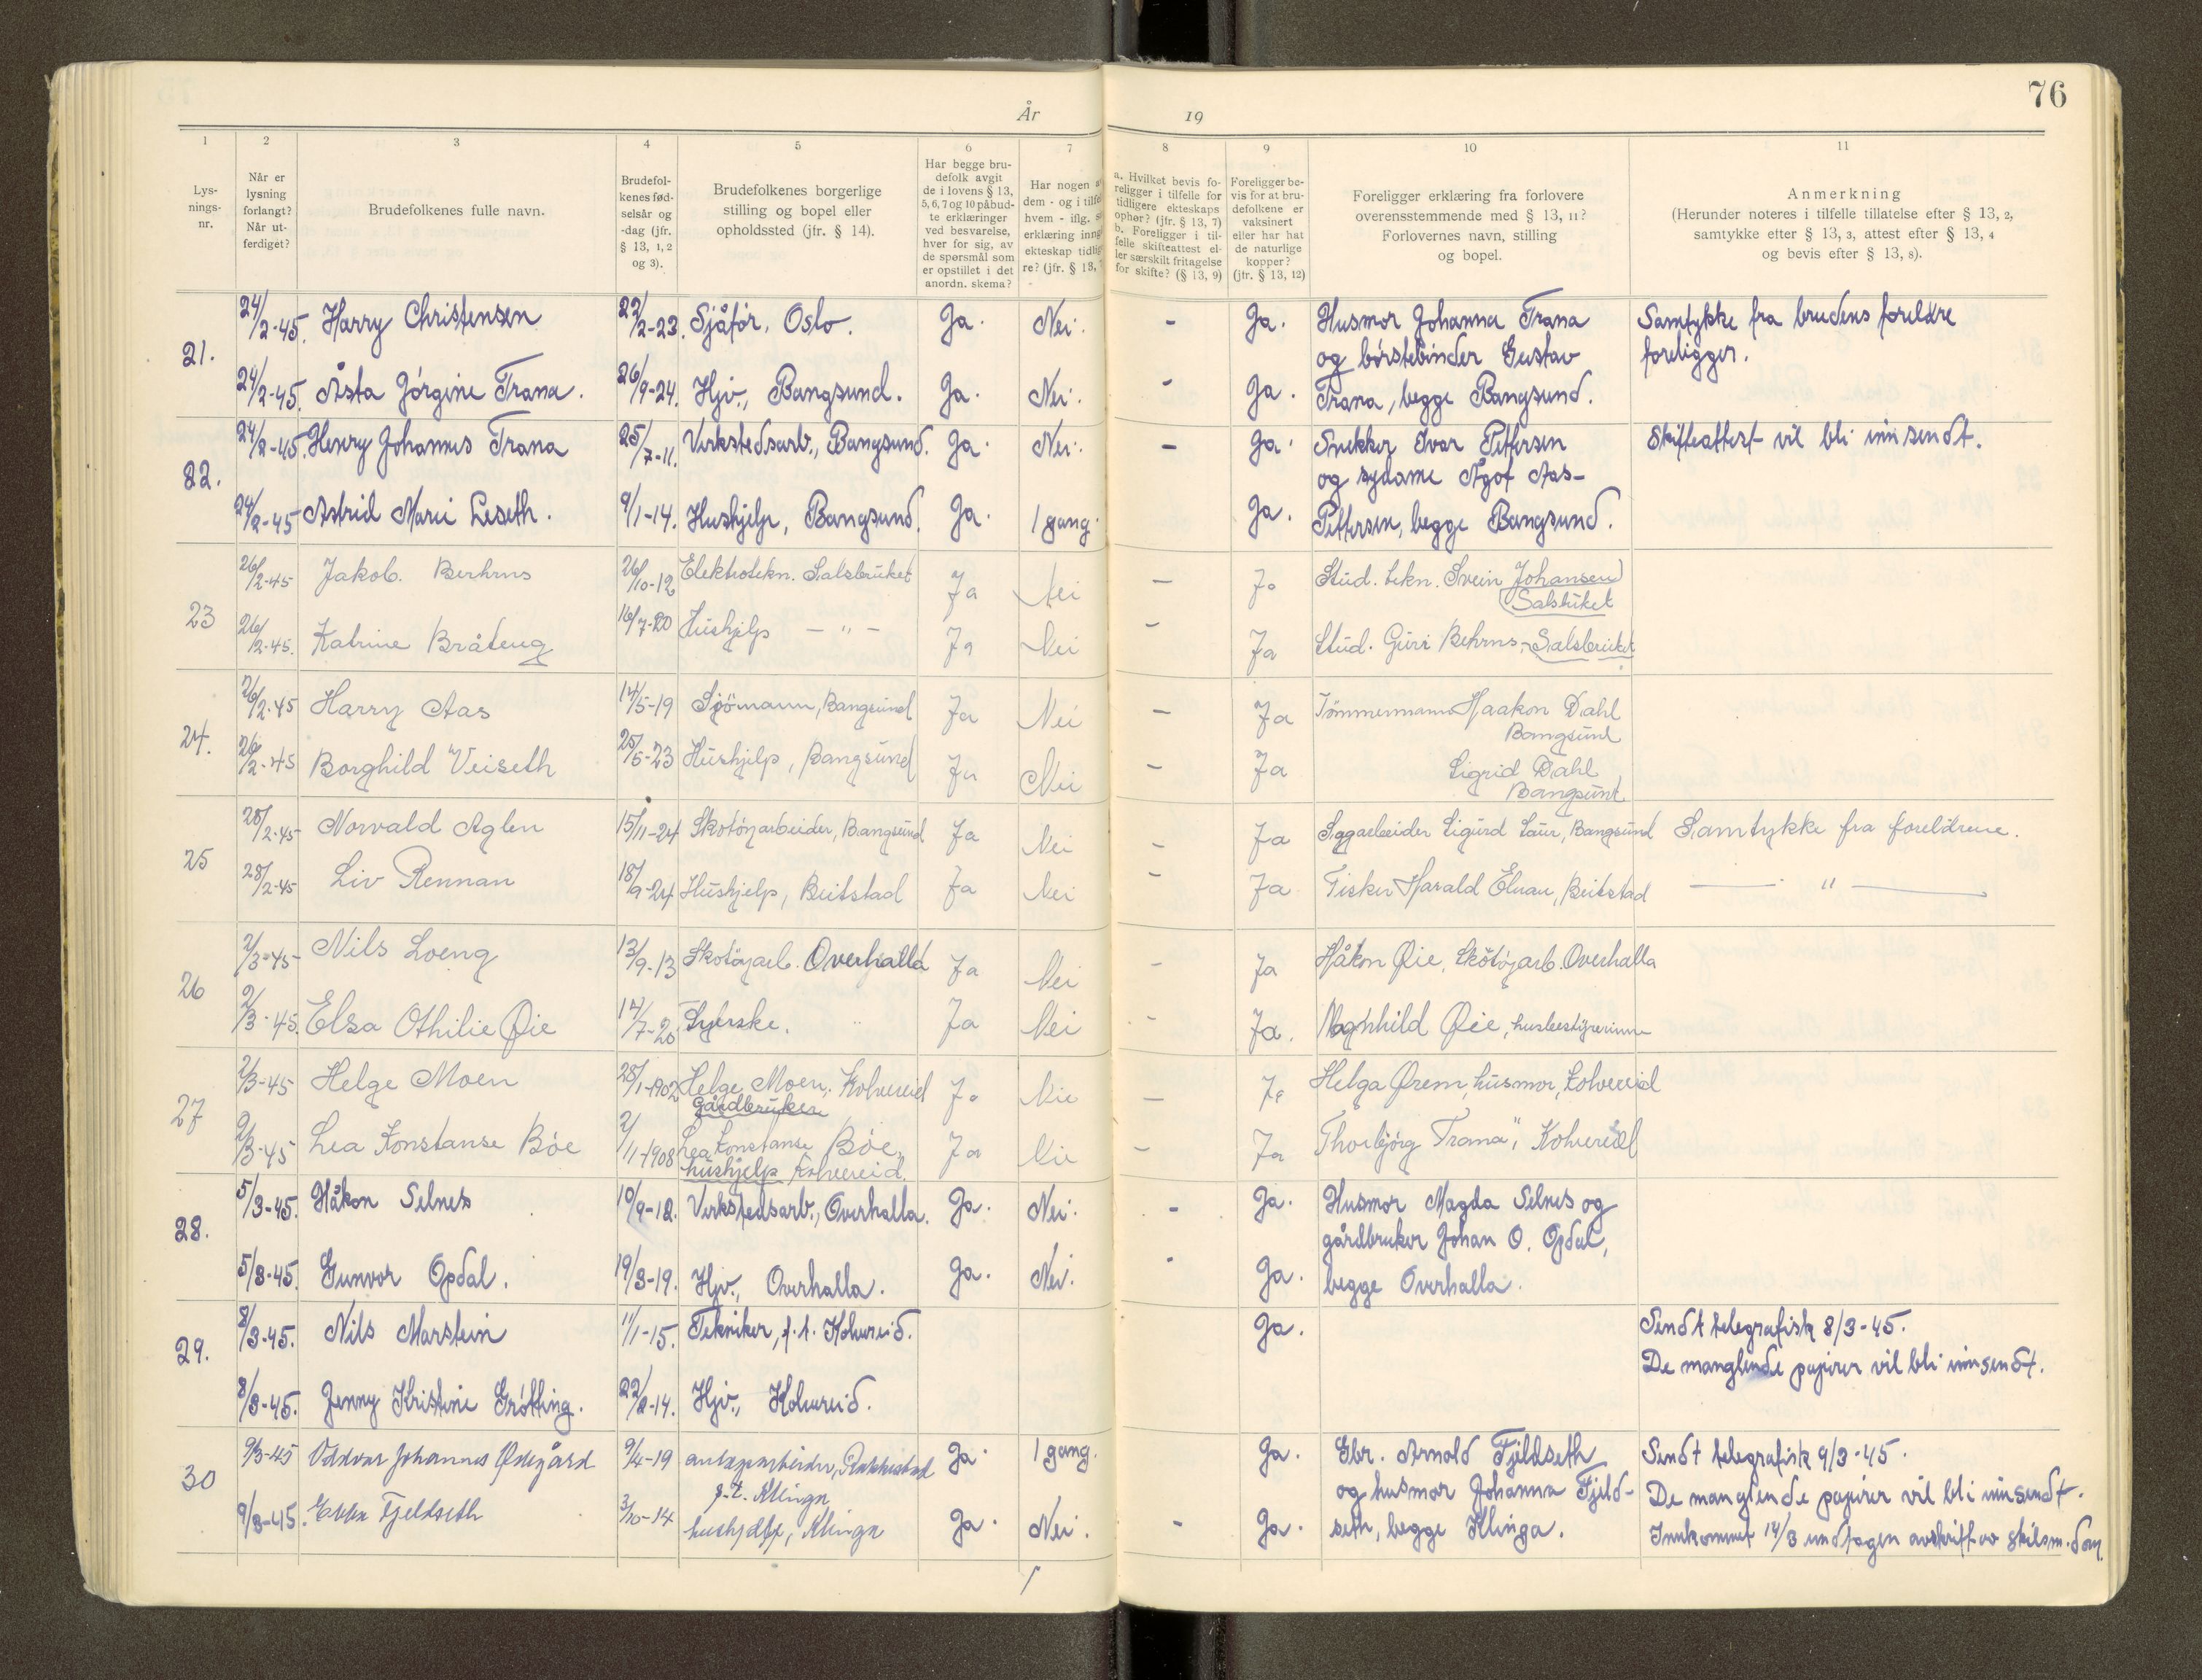 76
År 19
1 2 3 4 5 6 7 8 9 10 11
Lys-
nings-
nr.
Når er
lysning
forlangt?
Når ut-
ferdiget?
Brudefolkenes fulle navn.
Brudefol-
kenes fød-
selsår og
-dag (jfr.
§ 13, 1, 2
og 3).
Brudefolkenes borgerlige
stilling og bopel eller
opholdssted (jfr. § 14).
Har begge bru-
defolk avgit
de i lovens § 13,
5, 6, 7 og 10 påbud-
te erklæringer
ved besvarelse,
hver for sig, av
de spørsmål som
er opstillet i det
anordn. skema?
Har nogen a
dem - og i tilfe
hvem - iflg. s
erklæring inng
ekteskap tidlig
re? (jfr. § 13, 
a. Hvilket bevis fo-
religger i tilfelle for
tidligere ekteskaps
ophør? (jfr. § 13, 7)
b. Foreligger i til-
felle skifteattest el-
ler særskilt fritagelse
for skifte? (§ 13, 9)
Foreligger be-
vis for at bru-
defolkene er
vaksinert
eller har hat
de naturlige
kopper?
(jfr. § 13, 12)
Foreligger erklæring fra forlovere
overensstemmende med § 13, 11?
Forlovernes navn, stilling
og bopel.
Anmerkning
(Herunder noteres i tilfelle tillatelse efter § 13, 2,
samtykke efter § 13, 3, attest efter § 13, 4
og bevis efter § 13, 8).
21.
24/2-45. Harry Christensen 22/2-23. Sjåfør, Oslo. Ja. Nei. - Ja. Husmor Johanna Trana Samtykke fra brudens foreldre
og børstebinder Gustav foreligger.
24/2-45. Åsta Jørgine Trana. 26/9-24. Hjv., Bangsund. Ja. Nei. - Ja. Trana, begge Bangsund.
22.
24/2-45. Henry Johannes Trana 25/7-11. Verkstedsarb., Bangsund. Ja. Nei. - Ja. Snekker Ivar Pettersen Skifteattest vil bli innsendt.
og sydame Ågot Aas-
24/2-45 Astrid Marie Leseth. 9/1-14. Hushjelp, Bangsund. Ja. 1 gang. Ja. Pettersen, begge Bangsund.
23
26/2-45 Jakob. Berhrns 26/10-12 Elektrotekn. Salsbruket Ja Nei - Ja Stud. tekn. Svein Johansen
Salsbuket
26/2-45. Katrine Bråteng 16/7-20 Hushjelp - " - Ja Nei - Ja Stud. Guri Behrns, Salsbruket
24.
26/2-45 Harry Aas 14/5-19 Sjömann, Bangsund Ja Nei - Ja Tömmermann Haakon Dahl
Bangsund
26/2-45 Borghild Veiseth 25/5-23 Hushjelp, Bangsund Ja Nei - Ja Sigrid Dahl
Bangsund
25
28/2-45 Norvald Aglen 15/11-24 Skotöyarbeider, Bangsund Ja Nei - Ja Sigurd Saur, Bangsund Samtykke fra foreldrene.
28/2-45 Liv Rennan 18/9-24 Hushjelp, Beitstad Ja Nei - Ja Fisker Harald Elnan, Beitstad — " —
26
2/3-45 Nils Loeng 13/9-13 Skotöyarb. Overhalla Ja Nei - Ja Håkon Øie, Skötöyarb. Overhalla
2/3-45. Elsa Othilie Øie 14/7-20 Syerske. Ja Nei - Ja. Øie, husbestyrerinne
27
2/3-45 Helge Moen 28/1-1902 Helge Moen, Kolvereid Ja Nei - Ja Helga Ørem, husmor, Kolvereid
gårdbruker
2/3-45 Lea Konstanse Böe 2/11-1908 Lea Konstanse Böe, Ja Nei - Ja Thorbjörg Trana, Kolvereid
hushjelp Kolvereid.
28.
5/3-45. Håkon Selnes 10/9-12. Verkstedsarb., Overhalla. Ja. Nei. - Ja. Husmor Magda Selnes og
gårdbruker Johan O. Opdal,
5/3-45. Gunvor Opdal. 19/3-19. Hjv., Overhalla. Ja. Nei. - Ja. begge Overhalla.
29.
8/3-45. Nils Marstein 11/1-15. Tekniker, f.t. Kolvereid. Ja. Sendt telegrafisk 8/3-45.
De manglende papirer vil bli innsendt.
8/3-45. Jenny Kristine Grøtting. 22/2-14. Hjv., Kolvereid.
30
9/3-45 Oddvar Johannes Ødegård 9/4-19 anleggsarbeider, Rakkestad Ja. 1 gang. Ja. Gbr. Arnold Fjeldseth Sendt telegrafisk 9/3-45.
p.t. Klinga og husmor Johanna Fjeld- De manglende papirer vil bli innsendt.
9/3-45. Fjeldseth 3/10-14 hushjelp, Klinga Ja. Nei. - Ja. seth, begge Klinga. Innkommet 14/3 undtagen avskrift av skilsm.dom.